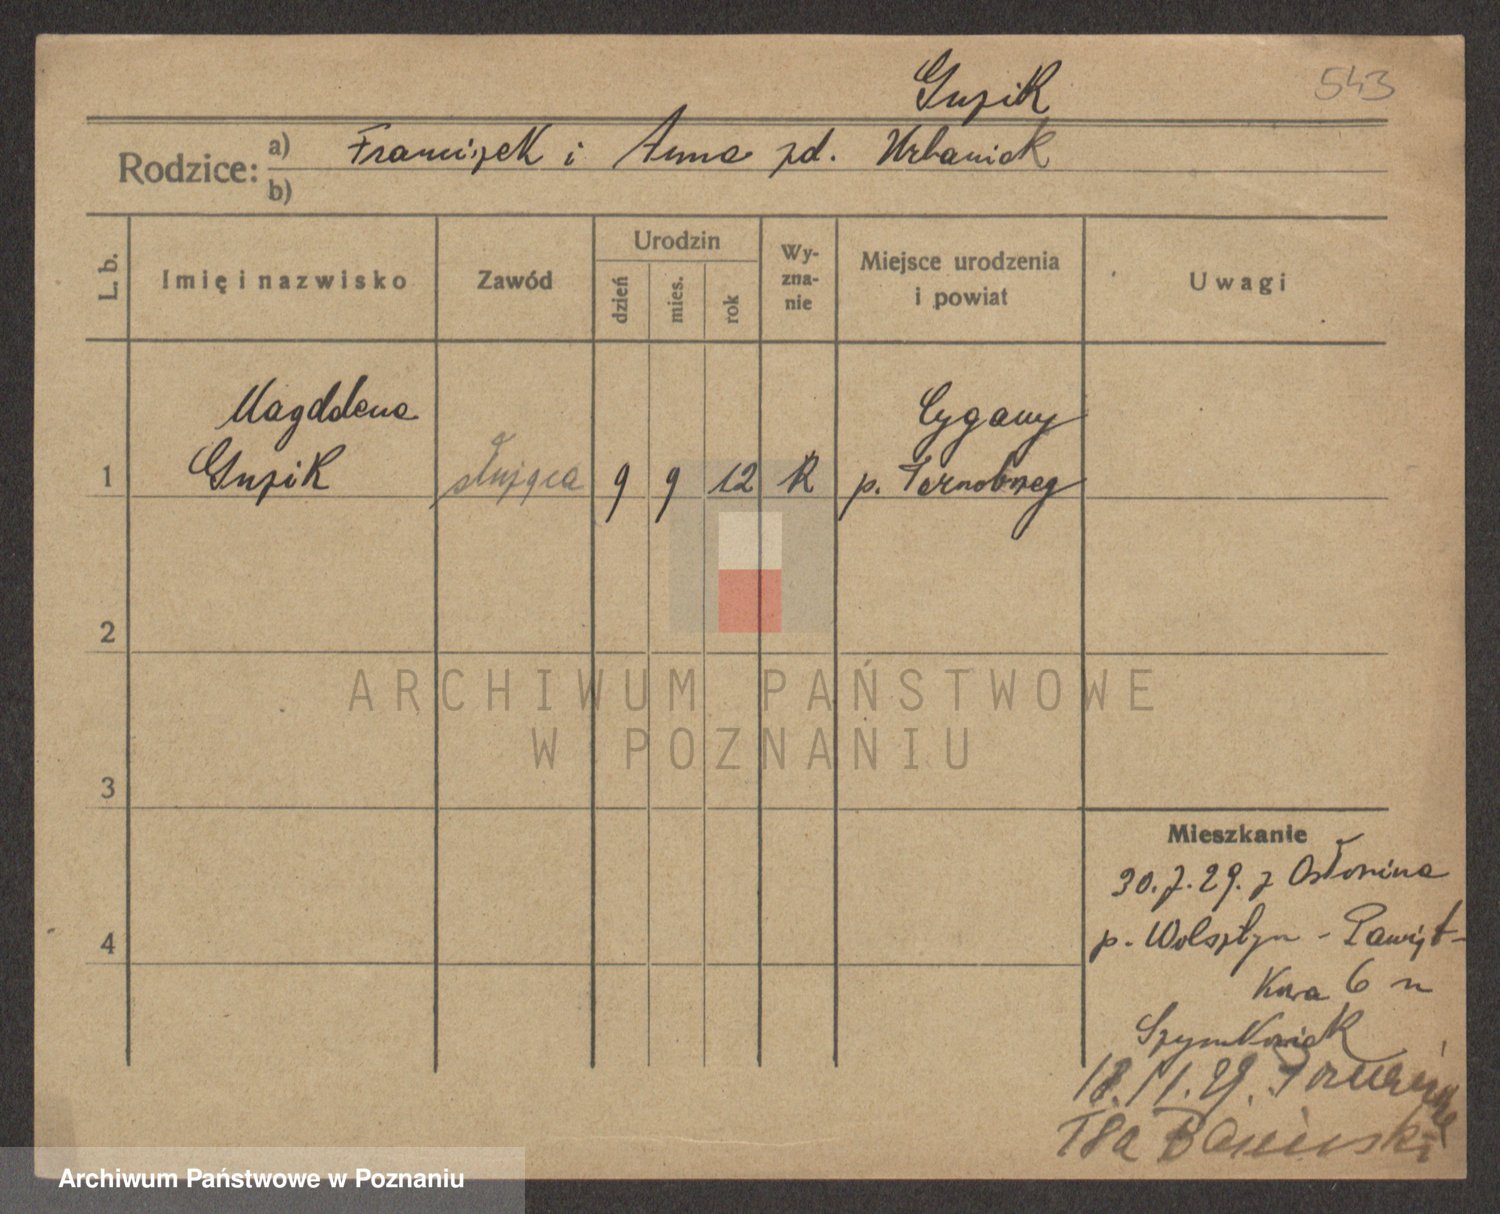 Guzik
543
Rodzice: a) Franciszek i Anna zd. Urbaniak
b)
L. b.
Imię i nazwisko
Zawód
Urodzin
dzień
mies.
rok
Wy-
zna-
nie
Miejsce urodzenia
i powiat
Uwagi
Magddena
1 Guzik służąca 9 9 12 R
Cygany
p. Tarnobrzeg
2
3
4
Mieszkanie
30.7.29. z Osłonina
p. Wolsztyn - Pawięt-
kowa 6 u
Szymkowiak
18.11.29.
18a
ARCHIWUM PAŃSTWOWE
W POZNANIU
Archiwum Państwowe w Poznaniu